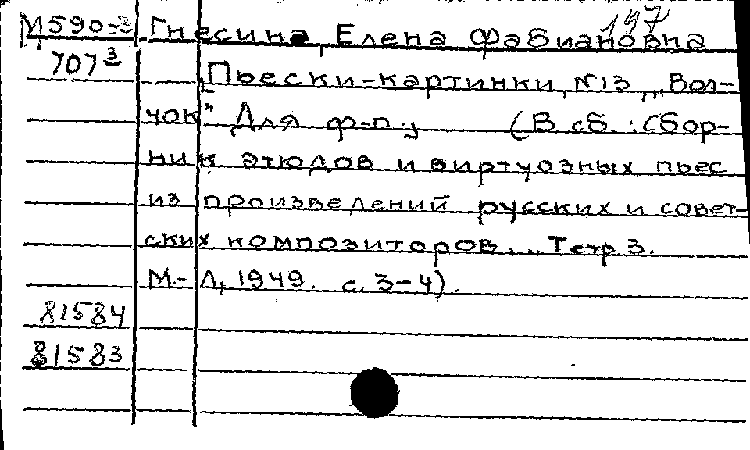 147
М590-3 Гнесина, Елена Фабиановна
707 3 Пьески-картинки, №13 „Вол-
чок" Для ф-п.; (В сб.: Сбор-
ник этюдов и виртуозных пьес
из произведений русских и совет-
ских композиторов... Тетр 3.
М.-Л, 1949. с. 3-4).
81584
81583